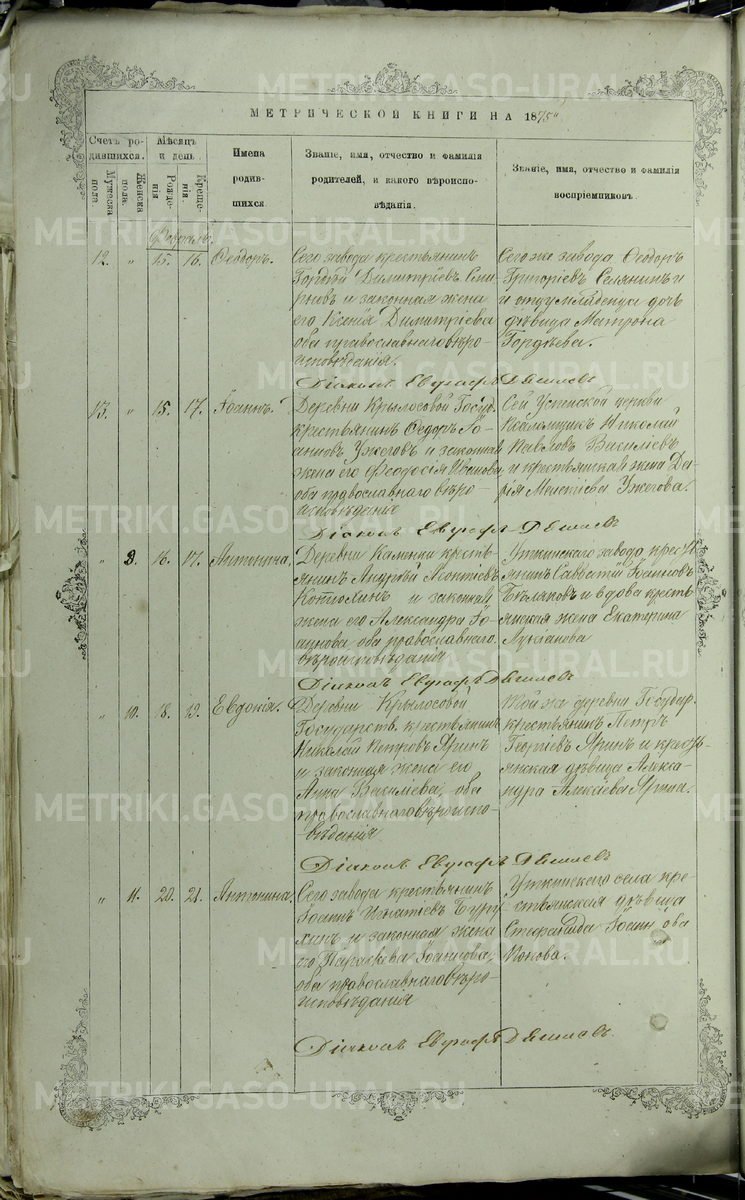 МЕТРИЧЕСКОЙ КНИГИ НА 1875
Счетъ родившихся.
Мужеска пола
Женска пола
Мѣсяцъ и день
Рожденія
Крещенія.
Имена родившихся.
Званіе, имя, отчество и фамилія родителей, и какого вѣроисповѣданія.
Званіе, имя, отчество и фамилія воспріемниковъ.
Февраль.
12. " 15. 16. Ѳеодоръ.
Сего завода крестьянинъ
Гордѣй Димитріевъ Смирновъ и законная жена
его Ксенія Димитріева
оба православнаго вѣроисповѣданія.
Сего же завода Ѳеодоръ
Григоріевъ Селянинъ и
дочь
дѣвица Матрона
Гордѣева.
Діаконъ Евграфъ
13. " 15. 17. Іоаннъ.
Деревни Крылосовой Госуд.
крестьянинъ Ѳедоръ Іоанновъ Ужеговъ и законная
жена его Ѳеодосія Иванова
оба православнаго вѣроисповѣданія
Сей Успенской церкви
Псаломщикъ Николай
Павловъ Василіевъ
и крестьянская жена Дарія Ужегова.
Діаконъ Евграфъ
" 9. 16. 17. Антонина.
Деревни Каменки крестьянинъ Андрей Леонтіевъ
и законная
жена его Александра Іоаннова оба православнаго
вѣроисповѣданія
Уткинскаго завода крестьянинъ Савватій Іоанновъ
Бѣляковъ и вдова крестьянская жена Екатерина
Лукіанова
Діаконъ Евграфъ
" 10. 18. 19. Евдокія.
Деревни Крылосовой
Государств. крестьянинъ
Николай Петровъ Яринъ
и законная жена его
Анна Василіева, оба
православнаго вѣроисповѣданія
Той же деревни Государ.
крестьянинъ Петръ
Георгіевъ Яринъ и крестьянская дѣвица Александра Алексіева Ярина.
Діаконъ Евграфъ
" 11. 20. 21. Антонина.
Сего завода крестьянинъ
Іоаннъ Игнатіевъ
и законная жена
его Параскева Іоаннова,
оба православнаго вѣроисповѣданія
Уткинскаго села крестьянская дѣвица
Іоаннова
Попова.
Діаконъ Евграфъ
METRIKI.GASO-URAL.RU